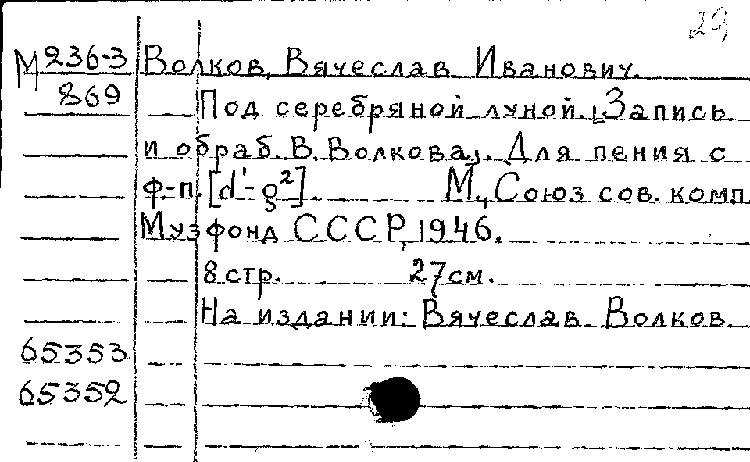 29
М 236-3 Волков, Вячеслав Иванович.
869 Под серебряной луной. [Запись
и обраб. В. Волкова]. Для пения с
ф-п. [d¹-g²]. М., Союз сов. комп.
Музфонд СССР, 1946.
8 стр. 27 см.
На издании: Вячеслав Волков.
65353
65352